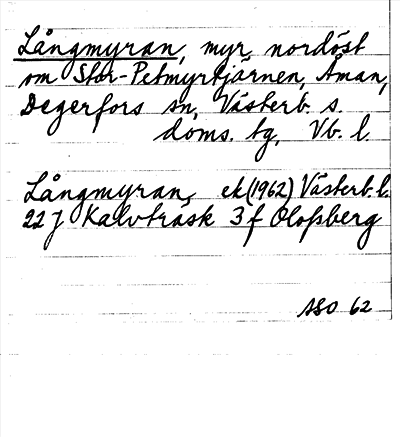 Långmyran, myr nordöst
om Stor-Petmyrtjärnen, Åman,
Degerfors sn, Västerb. s.
doms. tg, Vb. l.
Långmyran, ek (1962) Västerb. l.
22 J Kalvträsk 3 f Olofsberg
ASO 62